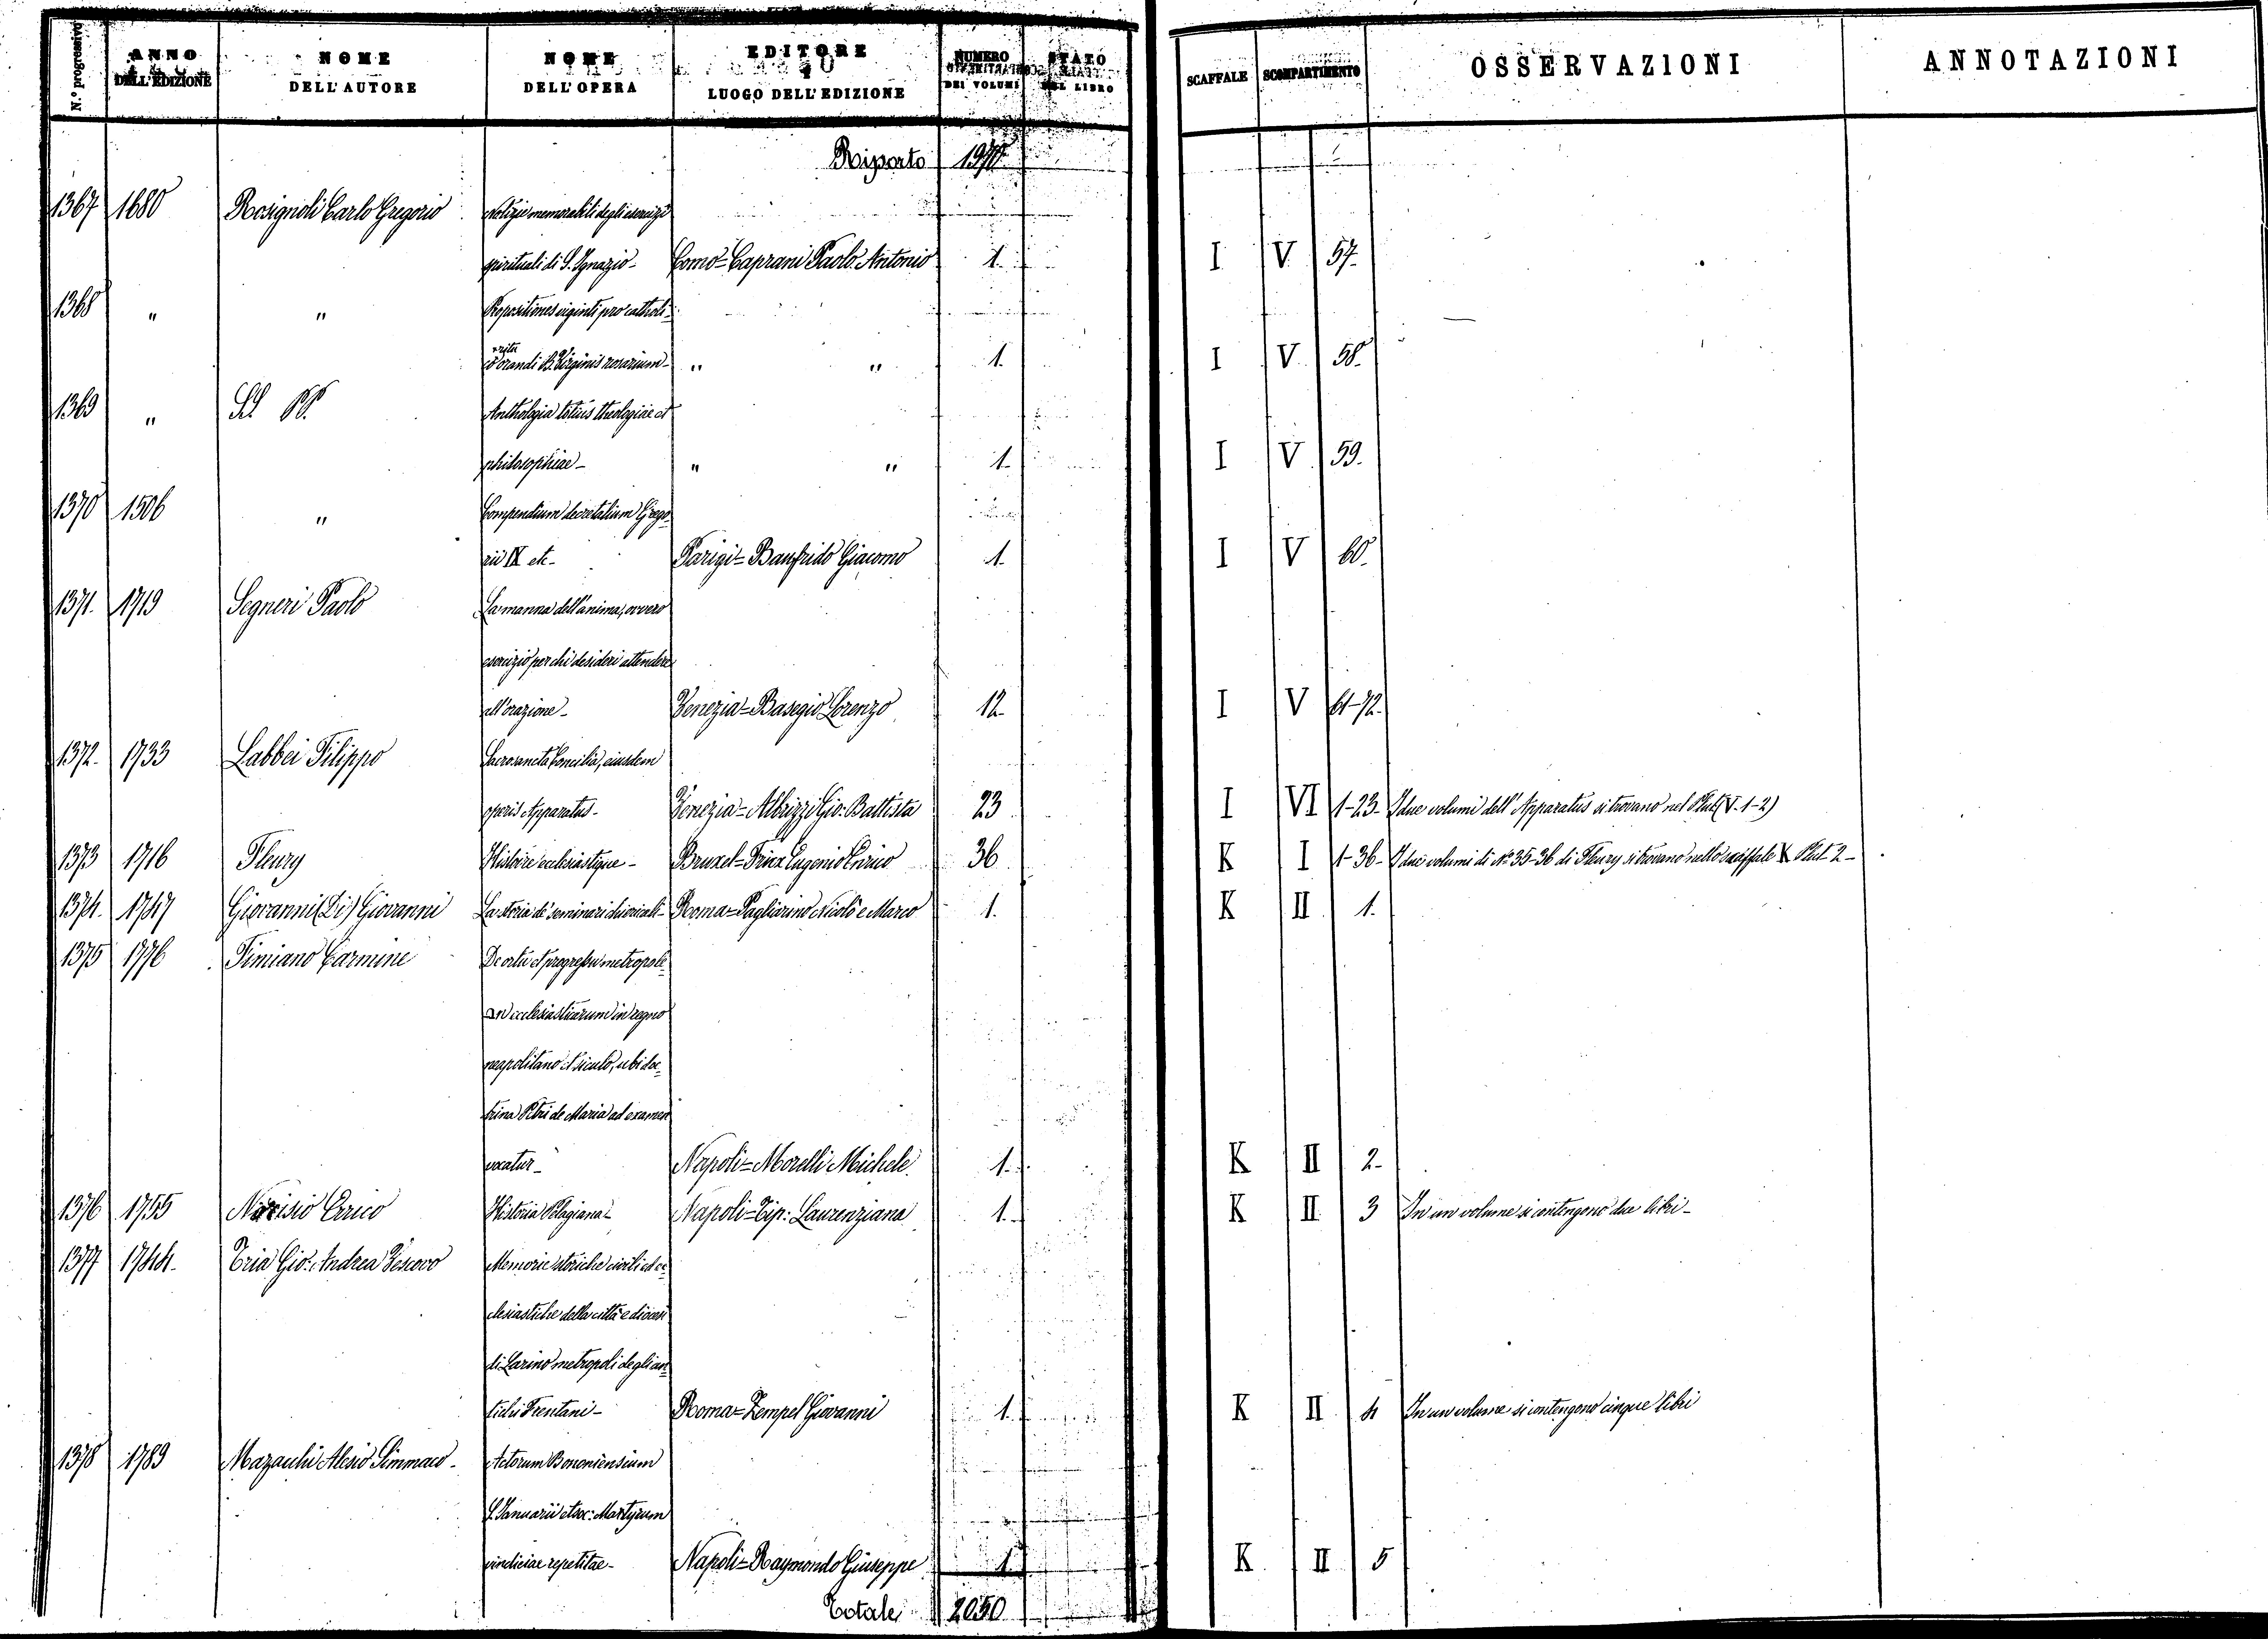 N.º progressivo | ANNO DELL'EDIZIONE | NOME DELL'AUTORE | NOME DELL'OPERA | EDITORE LUOGO DELL'EDIZIONE | NUMERO DEI VOLUMI | STATO DEL LIBRO | SCAFFALE | SCOMPARTIMENTO | OSSERVAZIONI | ANNOTAZIONI
Riporto 1970
1367 1680 Rosignoli Carlo Gregorio Notizie memorabili degli esercizi
spirituali di S. Ignazio - Como = Caprani Paolo Antonio 1. I V 57.
1368 " " Propositiones viginti pro catholi-
co ritu orandi B. Virginis rosarium - " " 1. I V 58.
1369 " Anthologia totius theologiae et
philosophiae - " " 1. I V 59.
1370 1506 " Compendium decretalium Grego-
rii IX etc - Parigi = Giacomo 1. I V 60.
1371. 1719 Segneri Paolo La manna dell'anima, ovvero
esercizio per chi desideri attendere
all'orazione - Venezia = Basegio Lorenzo 12 I V 61-72.
1372. 1733 Labbei Filippo Sacrosancta Concilia, eiusdem
operis Apparatus - Venezia = Albrizzi Gio: Battista 23 I VI 1-23 - I due volumi dell'Apparatus si trovano nel Plut (V. 1-2)
1373 1716 Fleury Histoire ecclesiastique - Bruxel = Frinx Eugenio Enrico 36 K I 1-36 - I due volumi di Nº 35-36 di Fleury si trovano nello scaffale K Plut 2 -
1374. 1747 Giovanni (Di) Giovanni La storia de' seminari chiericali - Roma = Pagliarino Nicolò e Marco 1. K II 1.
1375 1776 Fimiano Carmine De ortu et progressu metropoli-
an ecclesiasticarum in regno
neapolitano et siculo, ubi doc-
trina Petri de Maria ad examen
vocatur - Napoli = Morelli Michele 1. K II 2 -
1376 1755 Norisio Errico Historia Pelagiana - Napoli = Tip: Laurenziana 1. K II 3 In un volume si contengono due libri -
1377 1744. Tria Gio: Andrea Vescovo Memorie storiche civili ed ec-
clesiastiche della città e diocesi
di Larino metropoli degli an-
tichi Frentani - Roma = Zempel Giovanni 1. K II 4 In un volume si contengono cinque libri
1378 1789 Mazacchi Alesio Simmaco - Actorum Bononiensium
S. Januarii et soc: Martyrum
vindiciae repetitae - Napoli = Raymondo Giuseppe 1. K II 5
Totale 2050